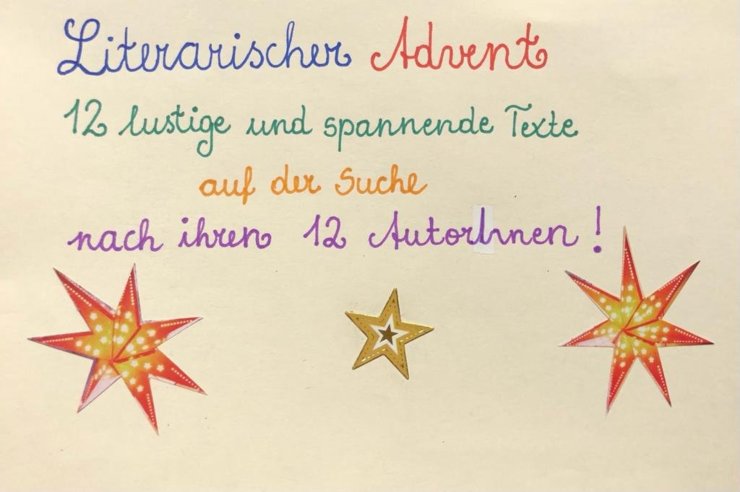 Literarischer Advent
12 lustige und spannende Texte
auf der Suche
nach ihren 12 AutorInnen!